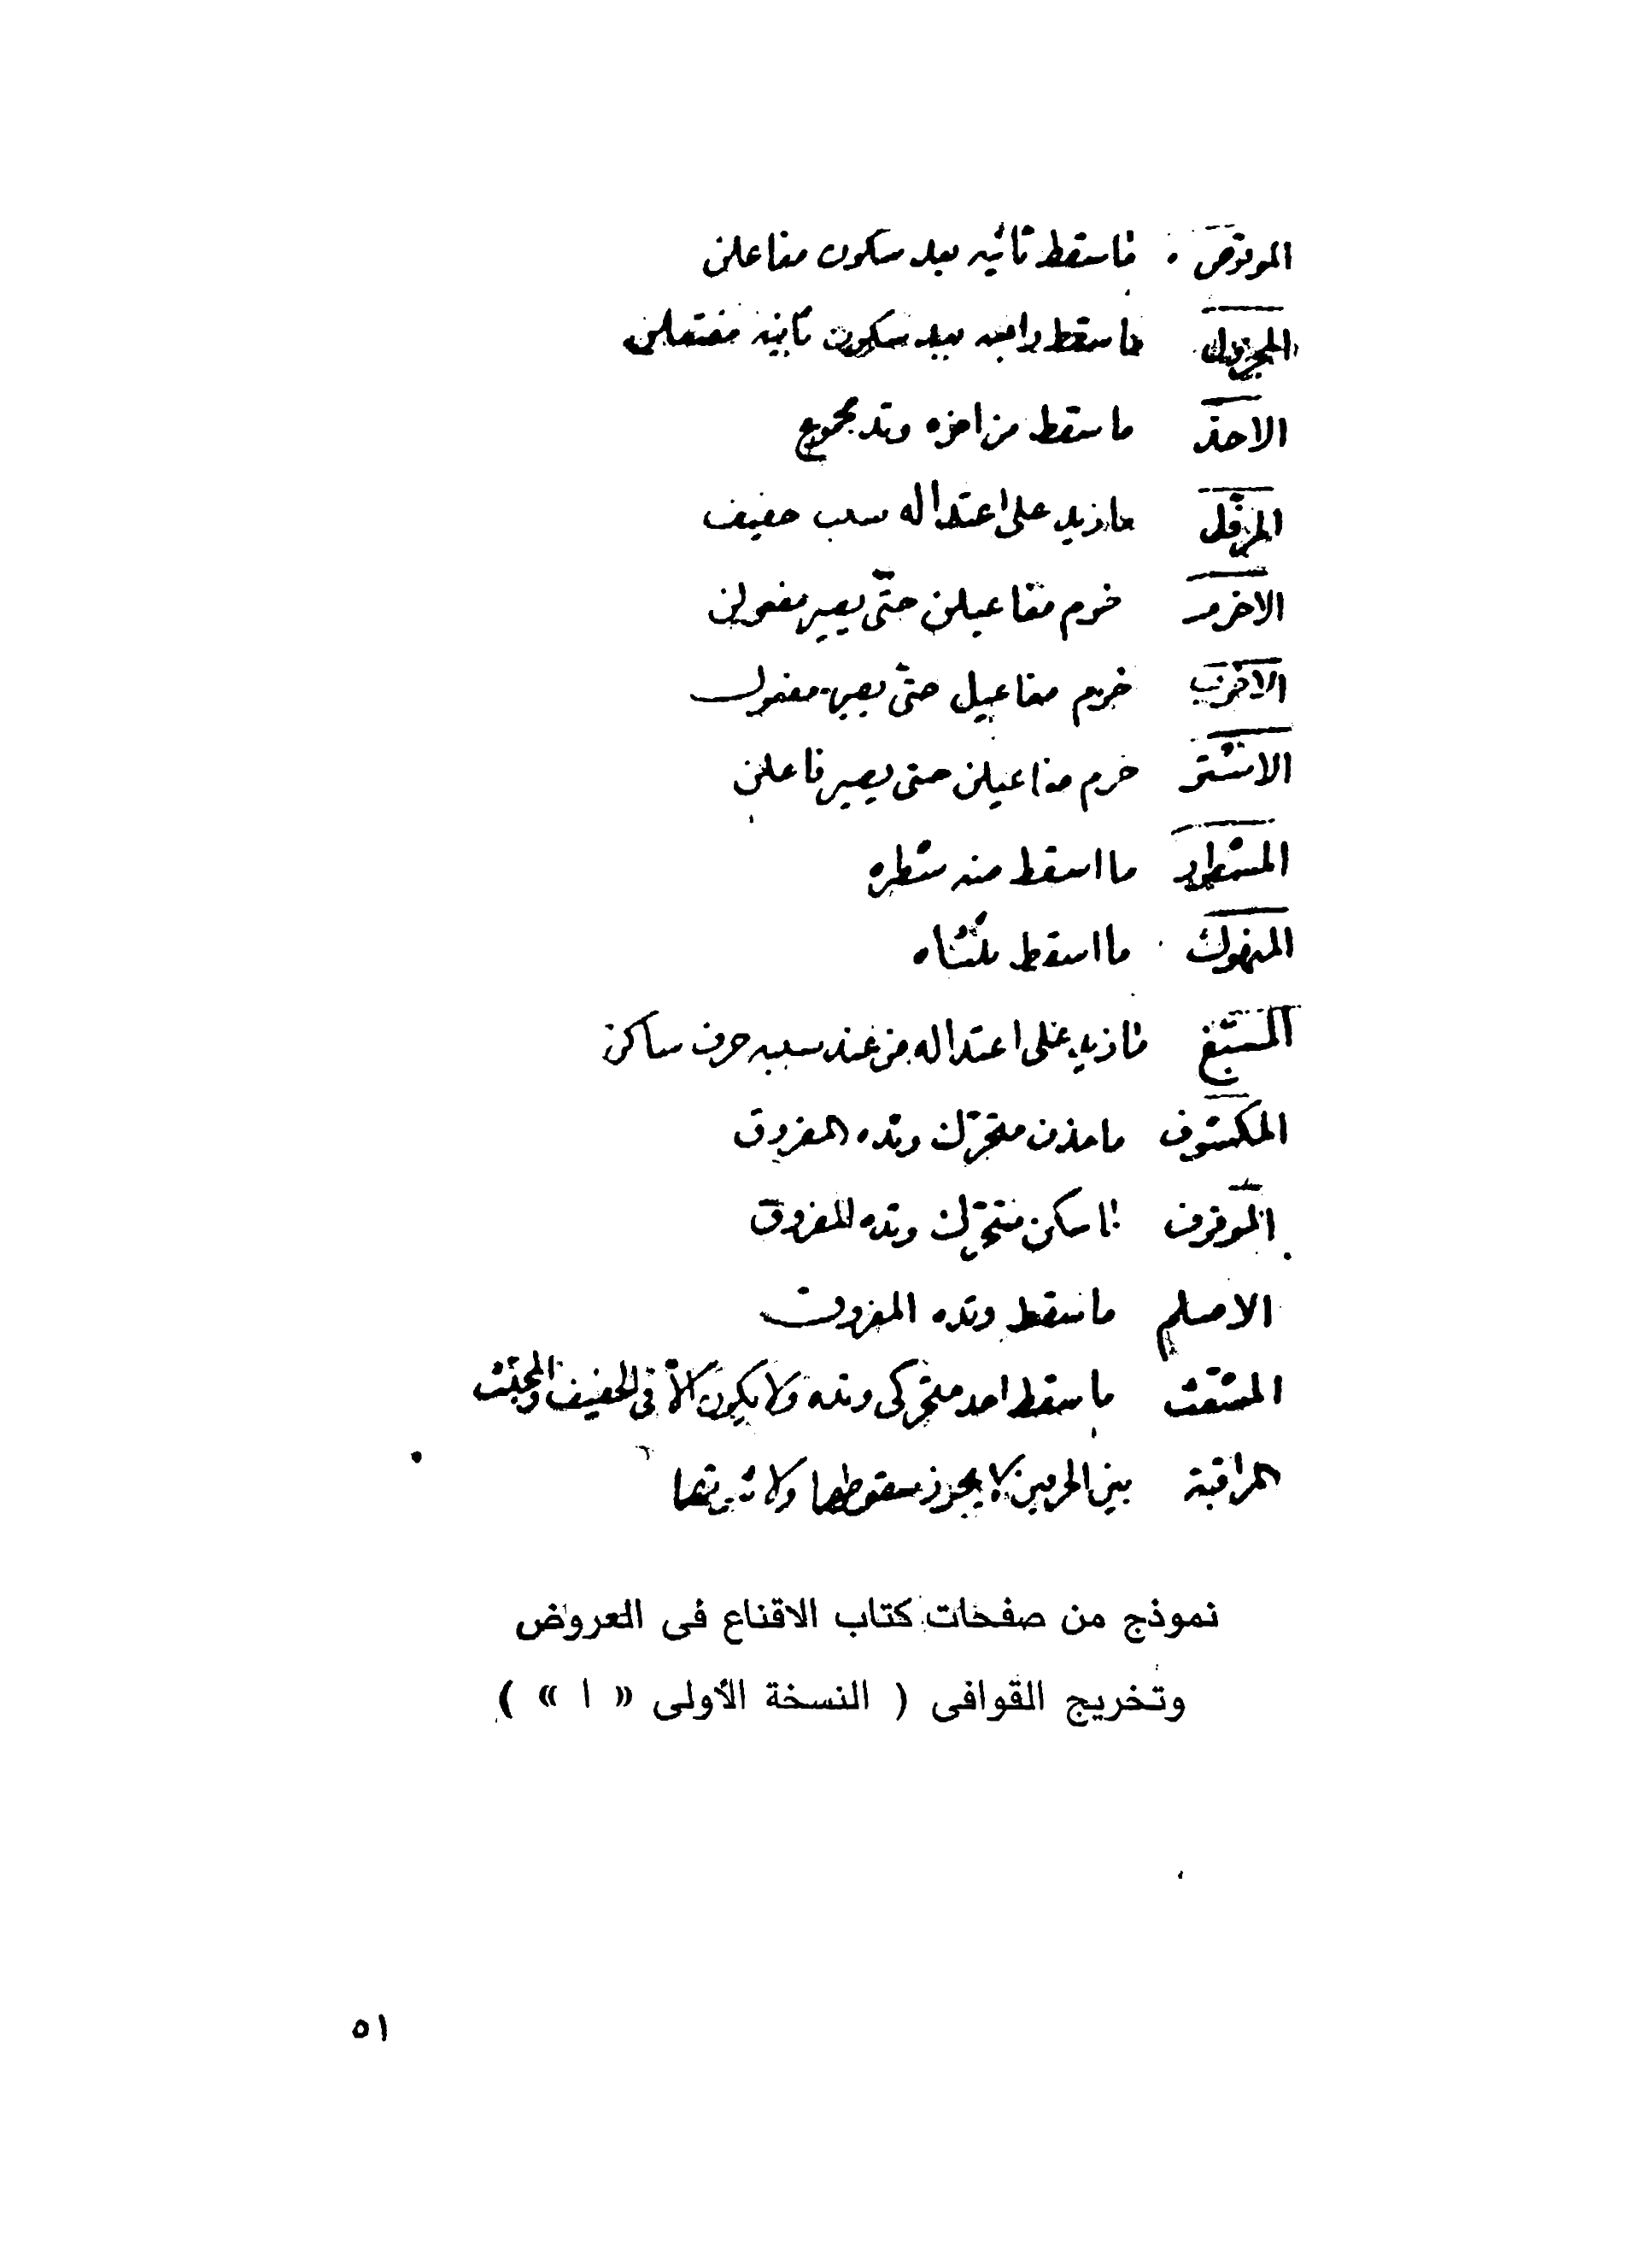 الموقوص ما سقط ثانيه بعد سكون مفاعلن
المجزول ما سقط رابعه بعد سكون ثانيه مفتعلن
الاحذ ما سقط من اخره وتد مجموع
المرفّل ما زيد على اعتداله سبب خفيف
الاخرم خرم مفاعيلن حتّى يصير مفعولن
الاخرب خرم مفاعيل حتّى يصير مفعول
الاشتر خرم مفاعيلن حتى يصير فاعلن
المشطور ما اسقط منه شطره
المنهوك ما اسقط ثلثاه
المسبّغ ما زيد على اعتداله من عند سببه حرف ساكن
المكشوف ما حذف متحرّك وتده المفروق
الموقوف ما سكن متحرّك وتده المفروق
الاصلم ما سقط وتده المفروق
المشعّث ما سقط احد متحركى وتده ولا يكون الّا فى الخفيف والمجتث
المراقبة بين الحرفين لا يجوز سقوطهما ولا
نموذج من صفحات كتاب الاقناع فى العروض
وتخريج القوافى ( النسخة الأولى « ا » )
٥١